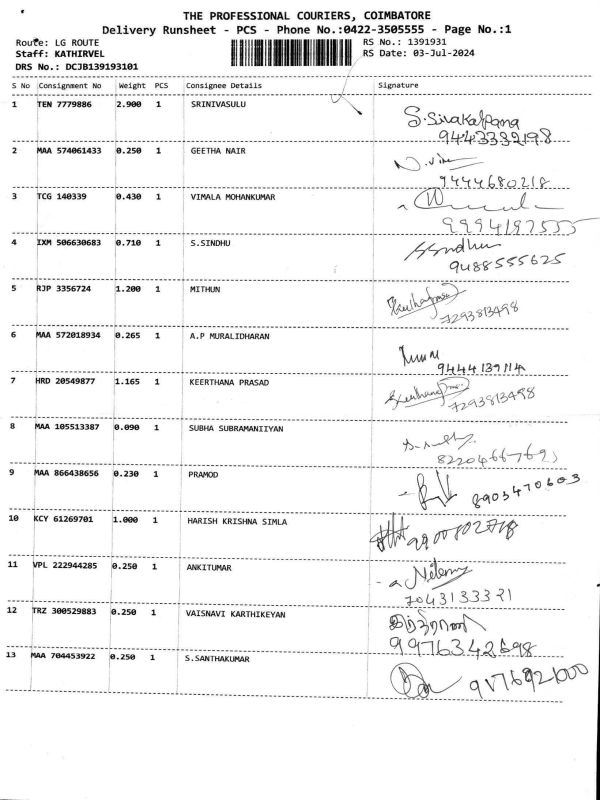 THE PROFESSIONAL COURIERS, COIMBATORE
Delivery Runsheet - PCS - Phone No.:0422-3505555 - Page No.:1
Route: LG ROUTE RS No.: 1391931
Staff: KATHIRVEL RS Date: 03-Jul-2024
DRS No.: DCJB139193101
S No Consignment No Weight PCS Consignee Details Signature
1 TEN 7779886 2.900 1 SRINIVASULU S.Sivakalpana
9443332198
2 MAA 574061433 0.250 1 GEETHA NAIR
9444680218
3 TCG 140339 0.430 1 VIMALA MOHANKUMAR
9994197555
4 IXM 506630683 0.710 1 S.SINDHU SSindhu
9488555625
5 RJP 3356724 1.200 1 MITHUN
7293813498
6 MAA 572018934 0.265 1 A.P MURALIDHARAN
9444139114
7 HRD 20549877 1.165 1 KEERTHANA PRASAD
7293813498
8 MAA 105513387 0.090 1 SUBHA SUBRAMANIIYAN
9 MAA 866438656 0.230 1 PRAMOD
8903470603
10 KCY 61269701 1.000 1 HARISH KRISHNA SIMLA
11 VPL 222944285 0.250 1 ANKITUMAR
7043133321
12 TRZ 300529883 0.250 1 VAISNAVI KARTHIKEYAN
9976342698
13 MAA 704453922 0.250 1 S.SANTHAKUMAR